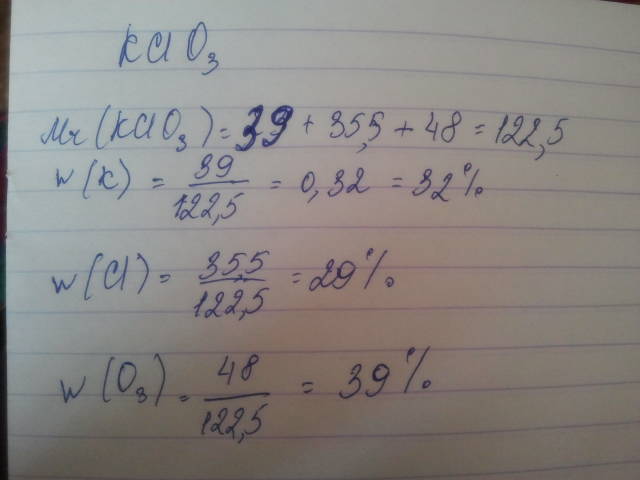 KClO₃
Mr(KClO₃) = 39 + 35,5 + 48 = 122,5
w(K) = 39/122,5 = 0,32 = 32%
w(Cl) = 35,5/122,5 = 29%
w(O₃) = 48/122,5 = 39%